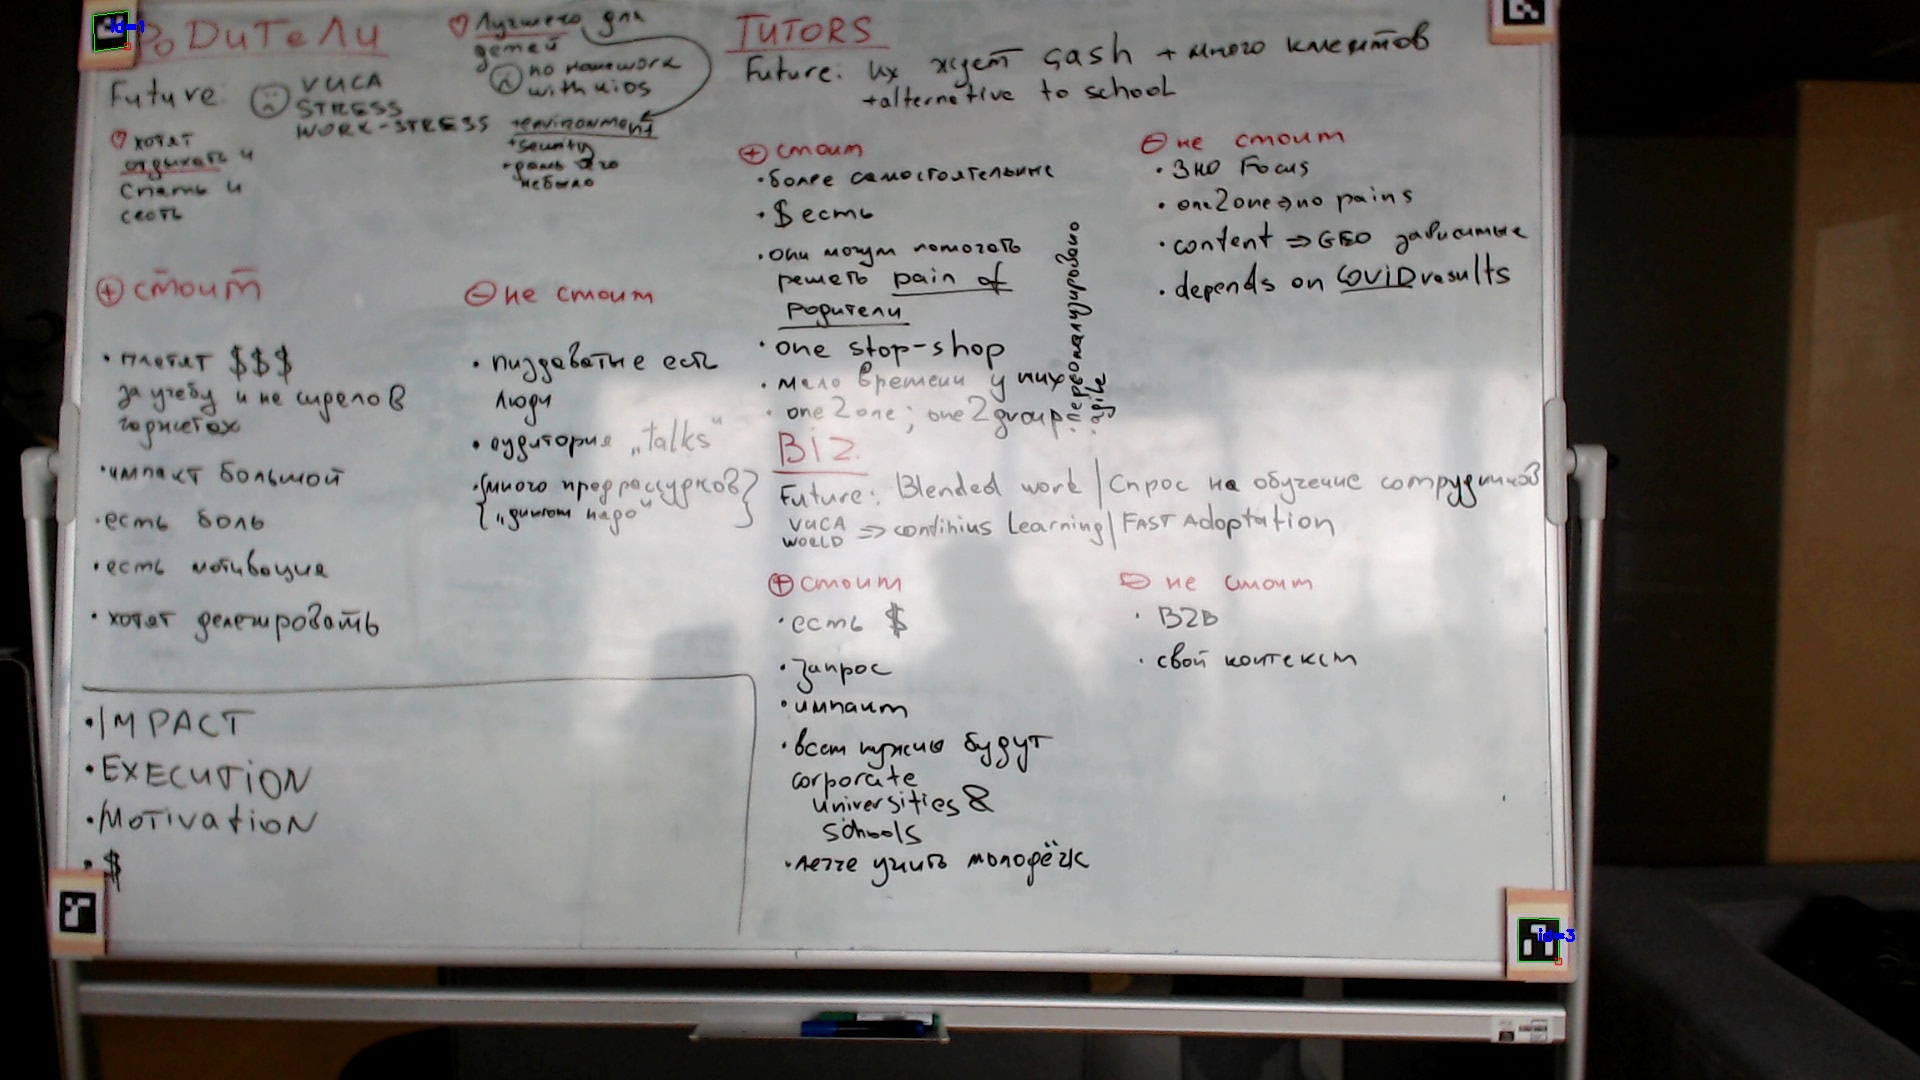 РОДИТЕЛИ
Future: VUCA
STRESS
WORK-STRESS
хотят
отдыхать и
спать и
сесть
Лучшего для
детей
no homework
with kids
+environment
+security
небыло
+ стоит
• платят $$$
за учебу и не
• импакт большой
• есть боль
• есть мотивация
• хотят делегировать
- не стоит
• пиздаватые есть
люди
• аудитория „talks"
• {много предрассудков}
{„диплом надо"}
• IMPACT
• EXECUTION
• MOTIVATION
• $
TUTORS
Future: их ждет cash + много клиентов
+alternative to school
+ стоит
• более самостоятельные
• $ есть
• они могут помогать
решать pain of
родители
• one stop-shop
• мало времени у них
• one2one; one2group
• agile
- не стоит
• ЗНО Focus
• one2one⇒no pains
• content ⇒ GEO зависимые
• depends on COVID results
BIZ.
Future: Blended work | Спрос на обучение сотрудников
VUCA
WORLD ⇒ continius Learning | FAST Adoptation
+ стоит
• есть $
• запрос
• импакт
• всем нужно будут
corporate
universities &
schools
• легче учить молодёж
- не стоит
• B2B
• свой контекст
id=1
id=3